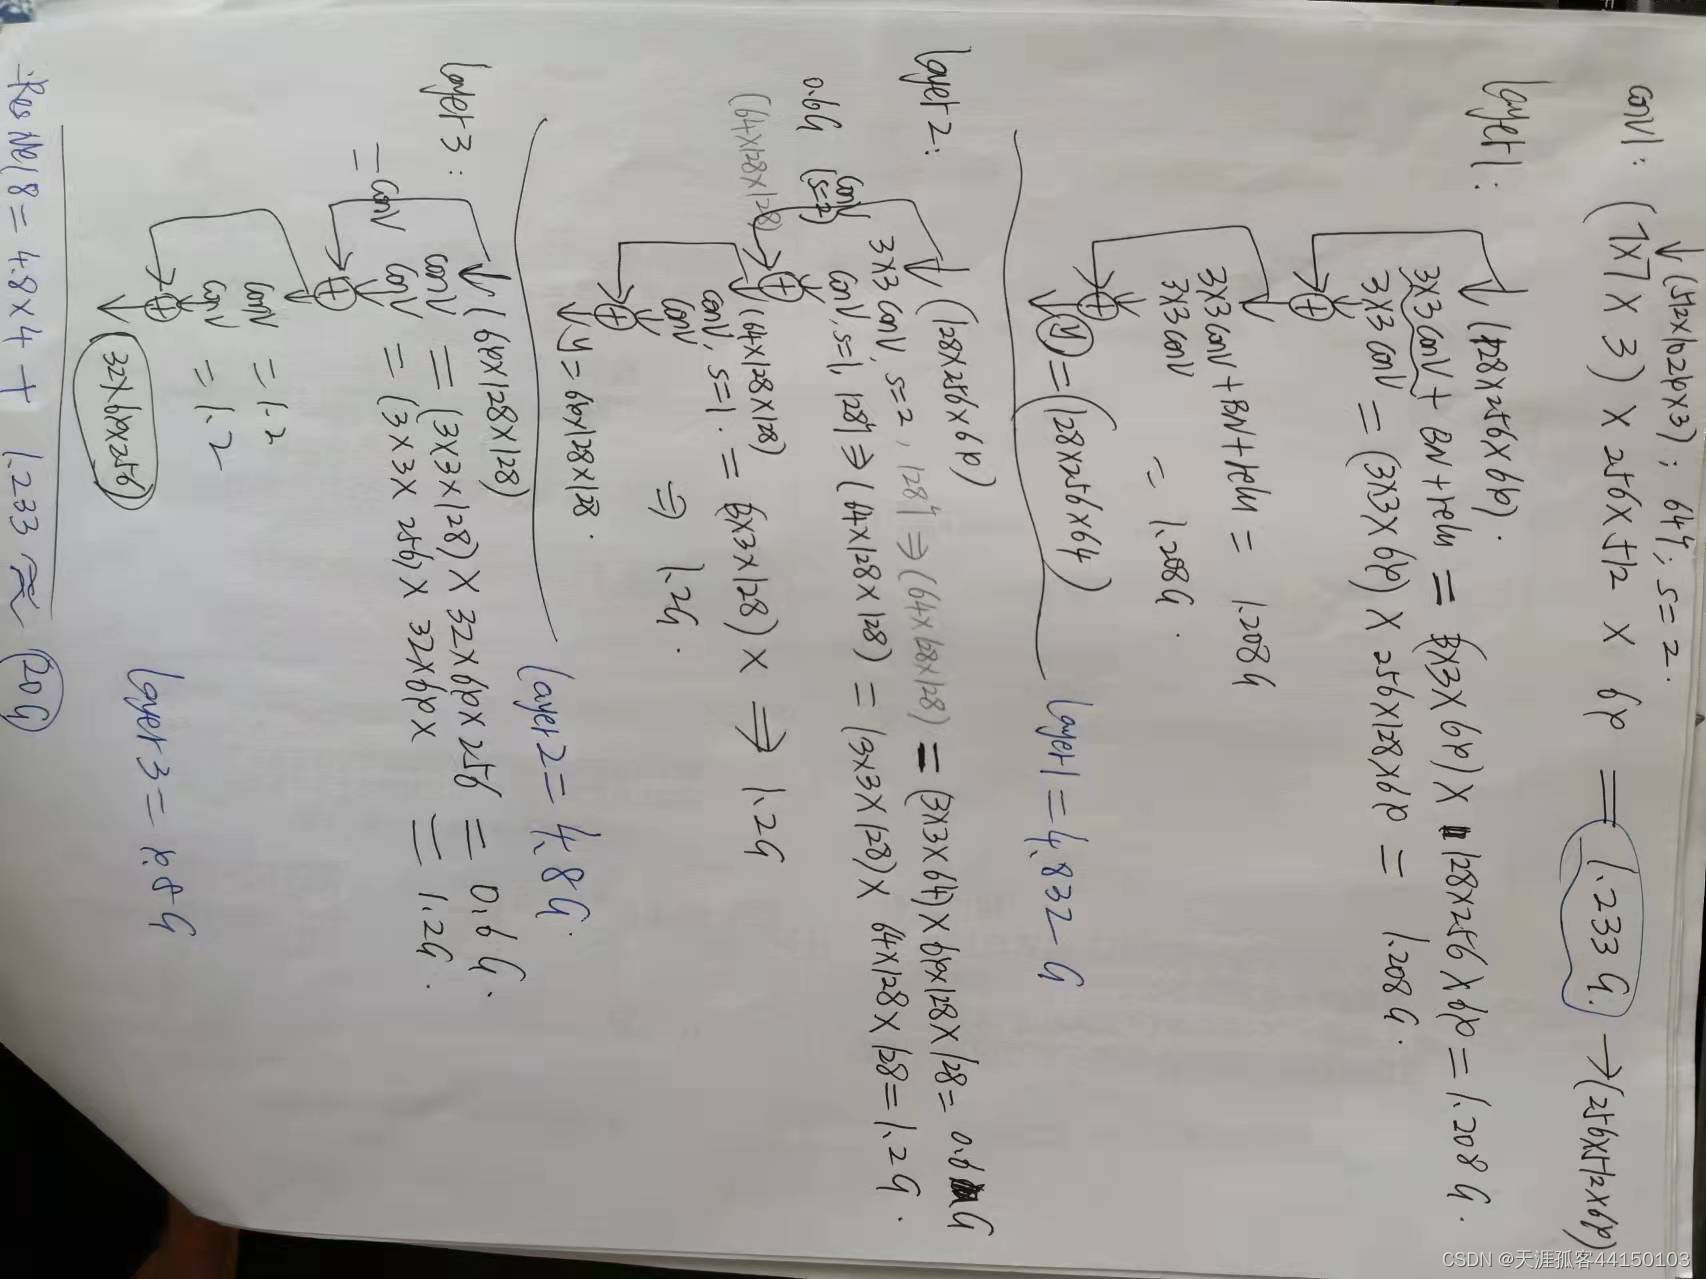 conv1: ↓(512x1024x3); 64个; s=2.
(7x7x3) x 256x512 x 64 = 1.233G. →(256x512x64)
layer1: ↓(128x256x64).
3x3conv+BN+relu = (3x3x64)x128x256x64=1.208G.
3x3conv = (3x3x64) x 256x128x64 = 1.208G.
⊕
3x3conv+BN+relu = 1.208G
3x3conv = 1.208G.
⊕
↓ y =(128x256x64)
layer1=4.832G
layer2: ↓(128x256x64)
3x3conv, s=2, 128个⇒(64x128x128) = (3x3x64)x64x128x128= 0.6G
0.6G conv (s=2) conv, s=1, 128个⇒(64x128x128) = (3x3x128)x 64x128x128=1.2G.
(64x128x128) ⊕
↓(64x128x128)
conv, s=1. = (3x3x128)x ⇒ 1.2G
conv ⇒ 1.2G.
⊕
↓ y=64x128x128.
layer2= 4.8G.
layer3: ↓(64x128x128)
conv = (3x3x128)x 32x64x256 = 0.6G.
=conv conv = (3x3x256x 32x64x = 1.2G.
⊕
conv =1.2
conv =1.2
⊕
↓ 32x64x256
layer3=4.8G
ResNe18=4.8x4+ 1.233≈ 20G
CSDN @天涯孤客44150103